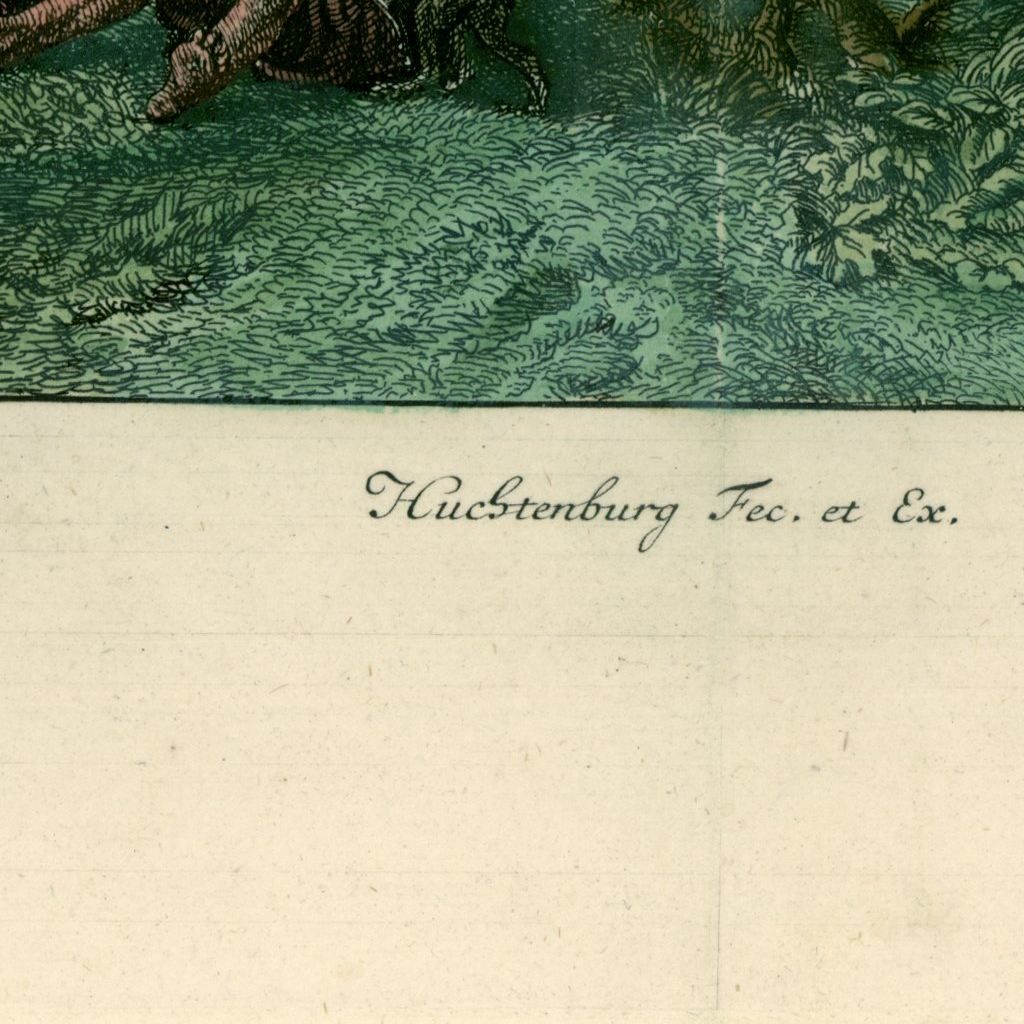 Huchtenburg Fec. et Ex.